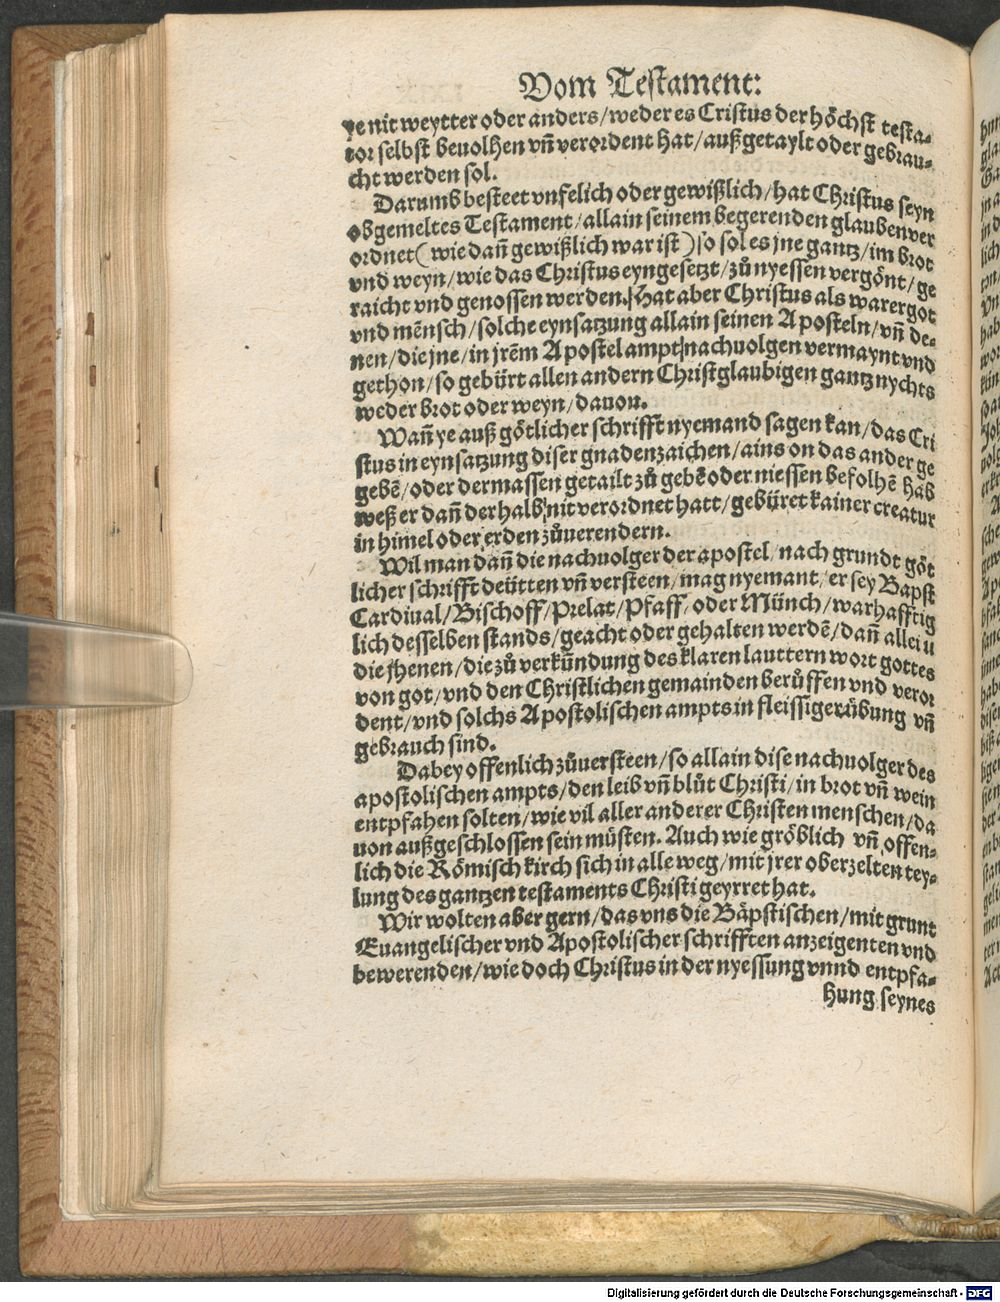 Vom Testament:
ye nit weytter oder anders/weder es Cristus der höchst testa-
tor selbst beuolhen vñ verordent hat/außgetaylt oder gebrau-
cht werden sol.
Darumb besteet vnfelich oder gewißlich/hat Christus seyn
obgemeltes Testament/allain seinem begerenden glauben ver
ordnet(wie dañ gewißlich war ist)so sol es jne gantz/im brot
vnd weyn/wie das Christus eyngesetzt/zů nyessen vergönt/ge
raicht vnd genossen werden. Hat aber Christus als warer got
vnd mẽnsch/solche eynsatzung allain seinen Aposteln/vñ de-
nen/die jne/in jrẽm Apostel ampt nachuolgen vermaynt vnd
gethon/so gebürt allen andern Christglaubigen gantz nychts
weder brot oder weyn/dauon.
Wañ ye auß götlicher schrifft nyemand sagen kan/das Cri
stus in eynsatzung diser gnadenzaichen/ains on das ander ge
gebẽ/oder dermassen getailt zů gebẽ oder niessen befolhẽ hab
weß er dañ derhalb nit verordnet hatt/gebüret kainer creatur
in himel oder erden zůuerendern.
Wil man dañ die nachuolger der apostel/nach grundt göt
licher schrifft deütten vñ versteen/mag nyemant/er sey Bapst
Cardinal/Bischoff/Prelat/Pfaff/oder Münch/warhafftig
lich desselben stands/geacht oder gehalten werdẽ/dañ allein
die jhenen/die zů verkündung des klaren lauttern wort gottes
von got/vnd den Christlichen gemainden berůffen vnd veror
dent/vnd solchs Apostolischen ampts in fleissiger übung vñ
gebrauch sind.
Dabey offenlich zůuersteen/so allain dise nachuolger des
apostolischen ampts/den leib vñ blůt Christi/in brot vñ wein
entpfahen solten/wie vil aller anderer Christen menschen/da
uon außgeschlossen sein müsten. Auch wie gröblich vñ offen-
lich die Römisch kirch sich in alle weg/mit jrer oberzelten tey-
lung des gantzen testaments Christi geyrret hat.
Wir wolten aber gern/das vns die Bäpstischen/mit grunt
Euangelischer vnd Apostolischer schrifften anzeigenten vnd
bewerenden/wie doch Christus in der nyessung vnnd entpfa-
hung seynes
Digitalisierung gefördert durch die Deutsche Forschungsgemeinschaft - DFG